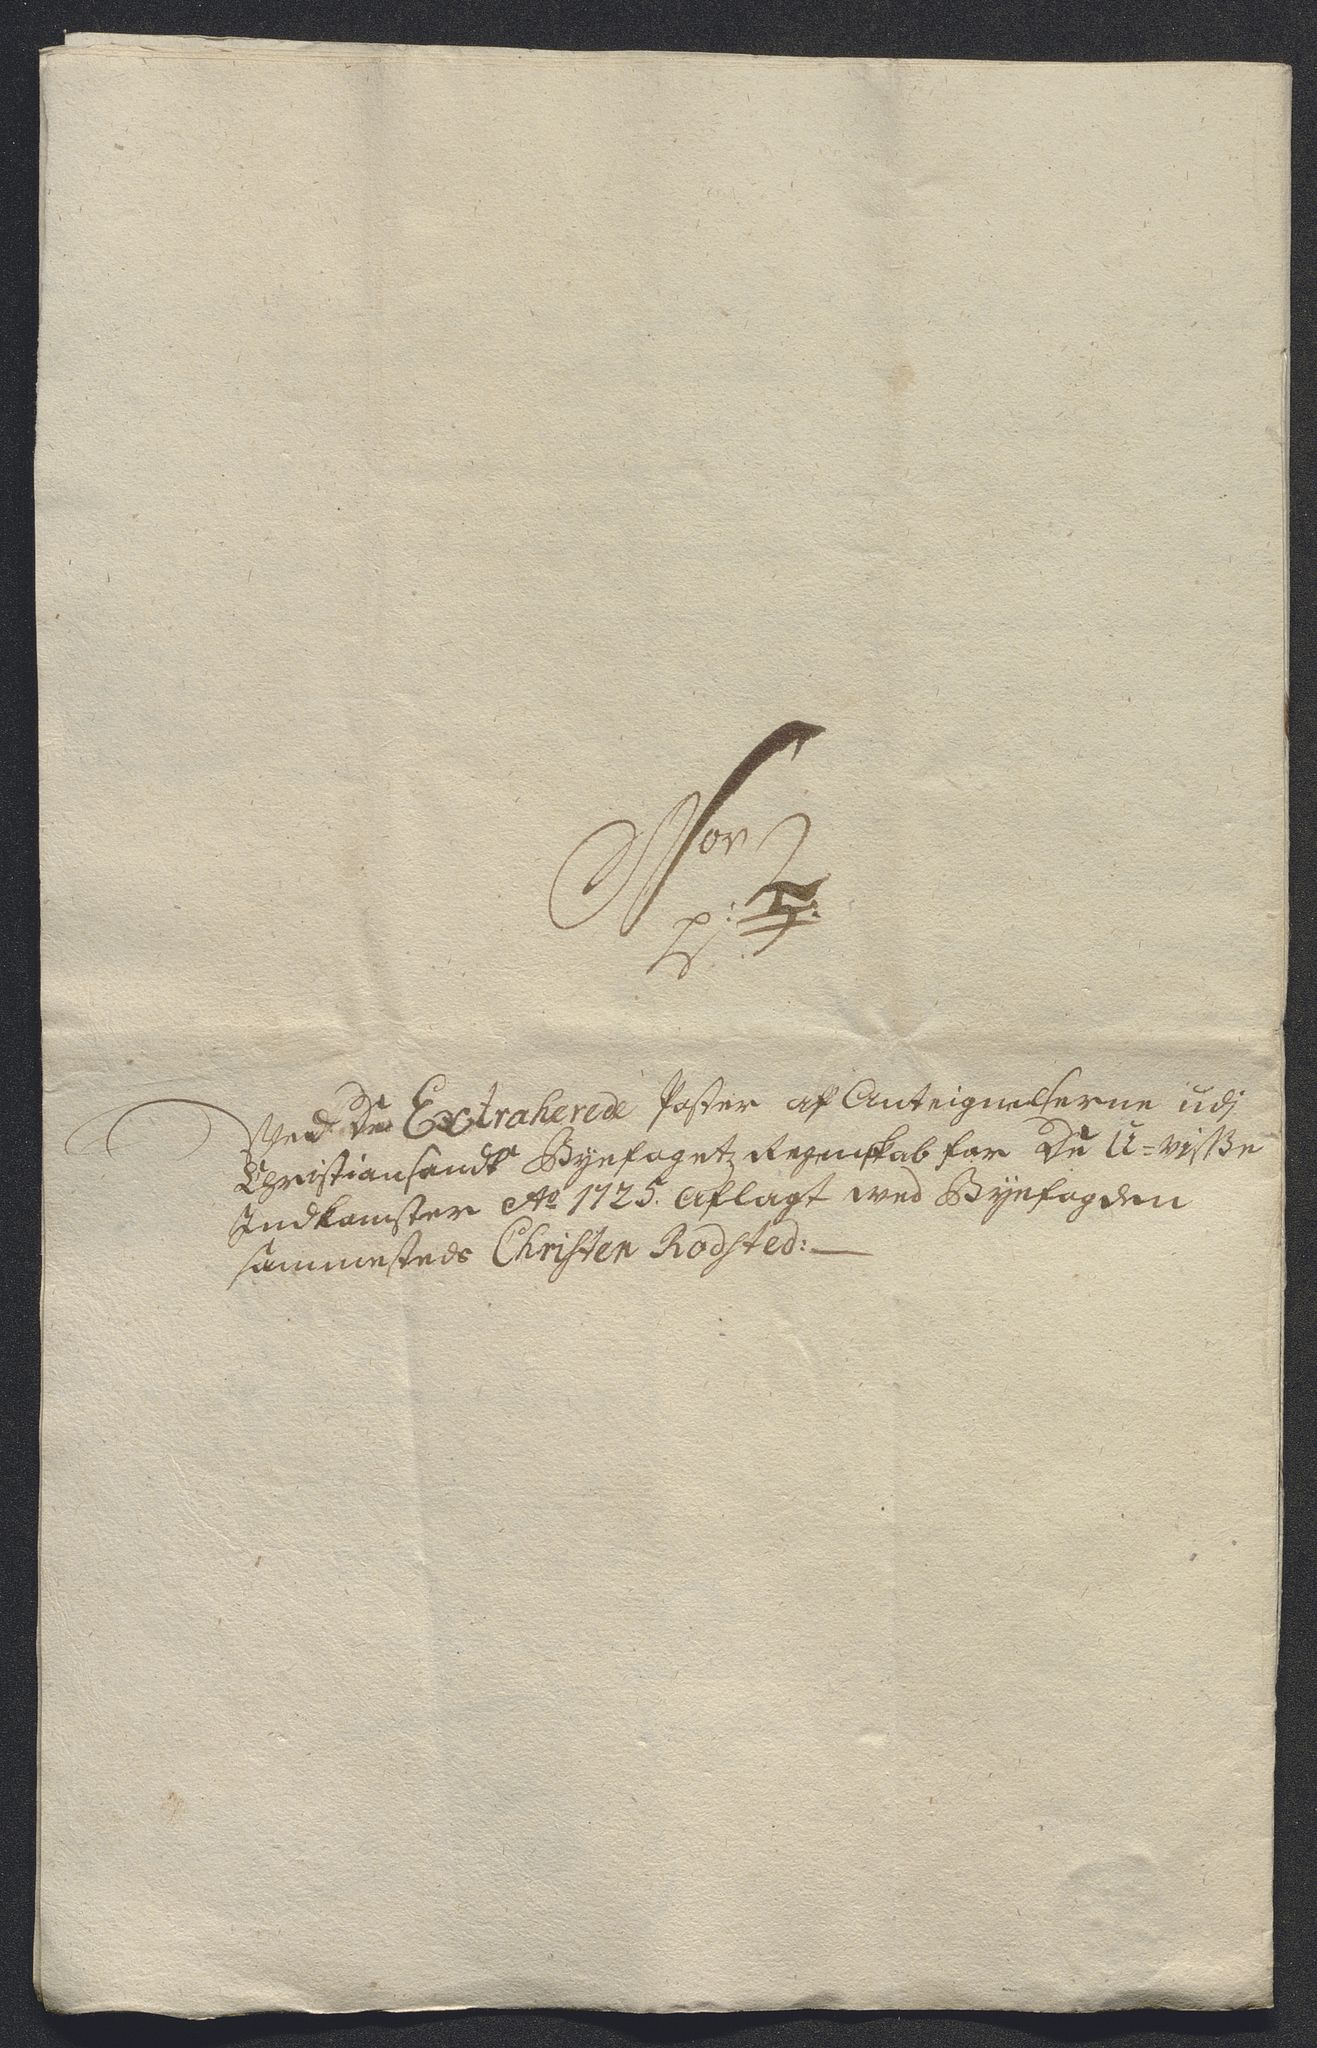 Ved De Extraherede Poster af Anteignelserne udj
Christiansands Byefogets Regenskab for De U=visse
Indkomster Ao 1725. aflagt ved Byefogden
sammesteds Christen Rodsted: